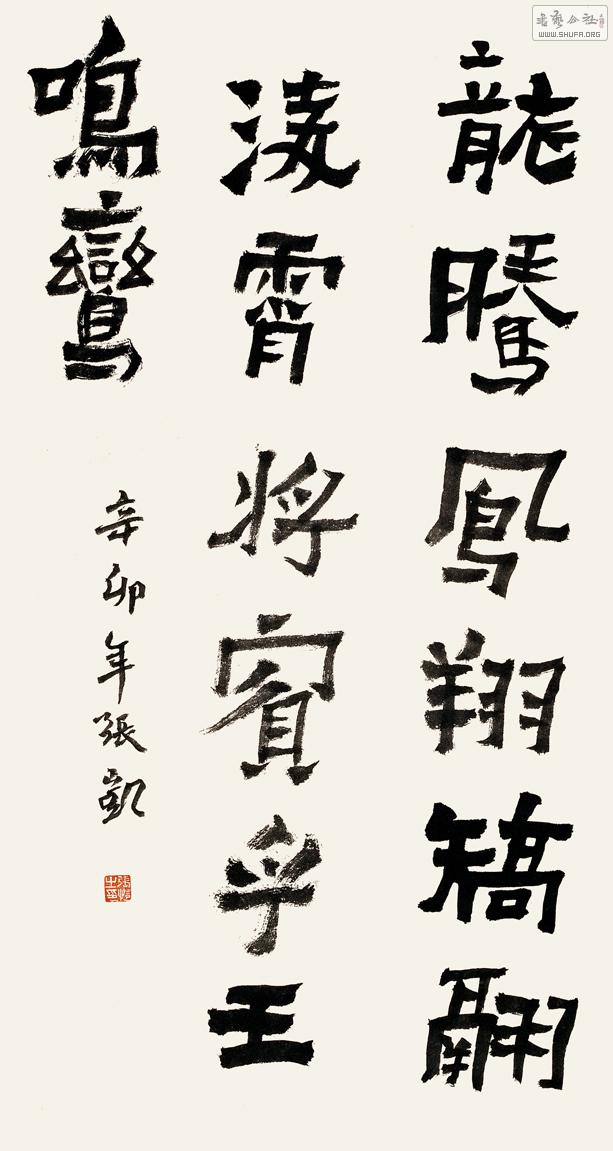 龍騰鳳翔矯翮
淩霄将賓乎王
鳴鸞
辛卯年張凱
書藝公社
WWW.SHUFA.ORG